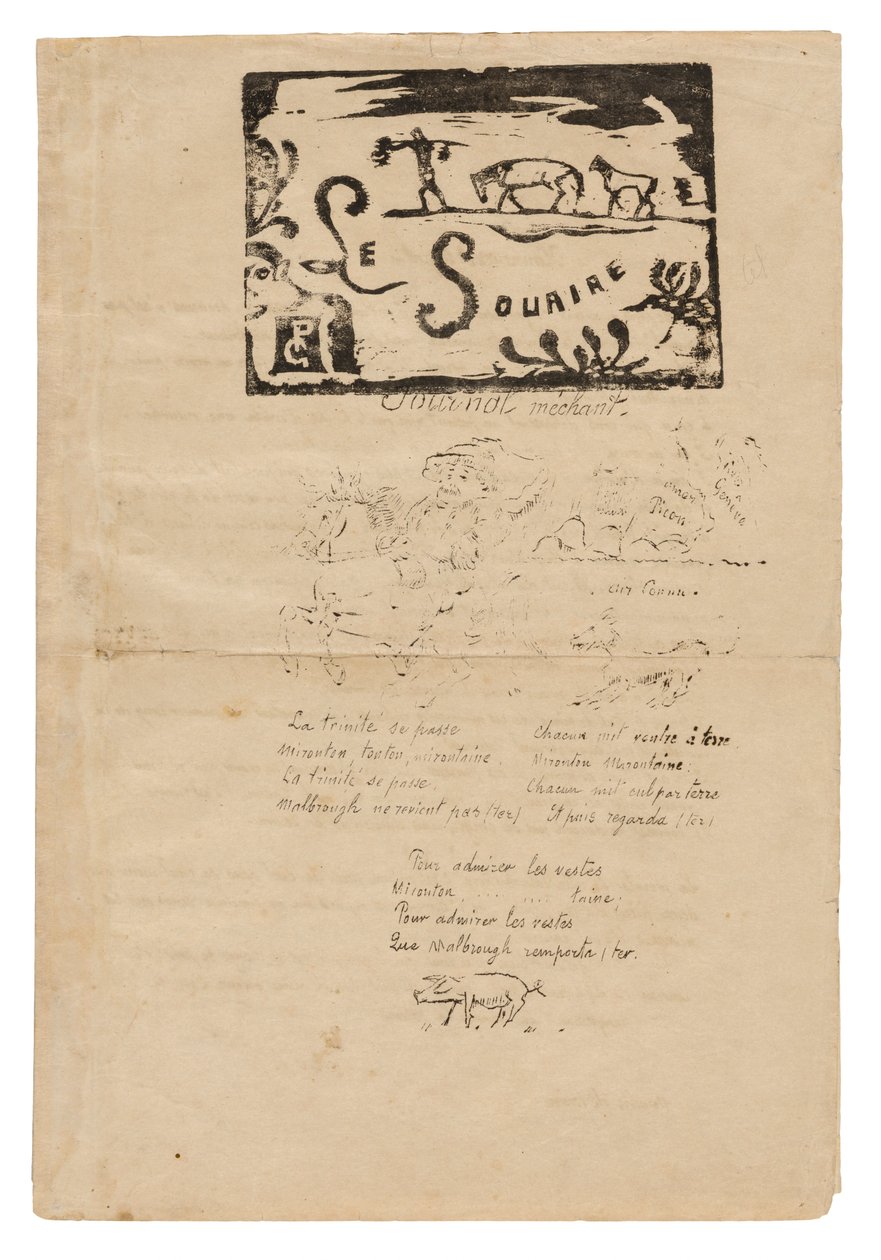 LE
SOURIRE
PG
Journal méchant.
amer
Picon
Genève
air connu.
La trinité se passe
Mirouton, tonton, mirontaine.
La trinité se passe.
Malbrough ne revient pas (ter)
Chacun mit ventre à terre.
Mironton Mirontaine;
Chacun mit cul par terre
Et puis regarda (ter)
Pour admirer les vestes
Mirouton, .... .... taine;
Pour admirer les vestes
Que Malbrough remporta (ter.